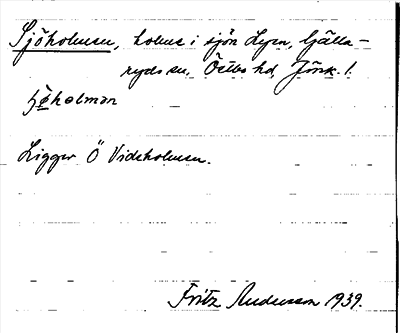 Sjöholmen, holme i sjön Lyen, Gälla-
ryds sn, Östbo hd, Jönk. l.
ʃøholmən
Ligger Ö Videholmen.
Fritz Andersson 1939.